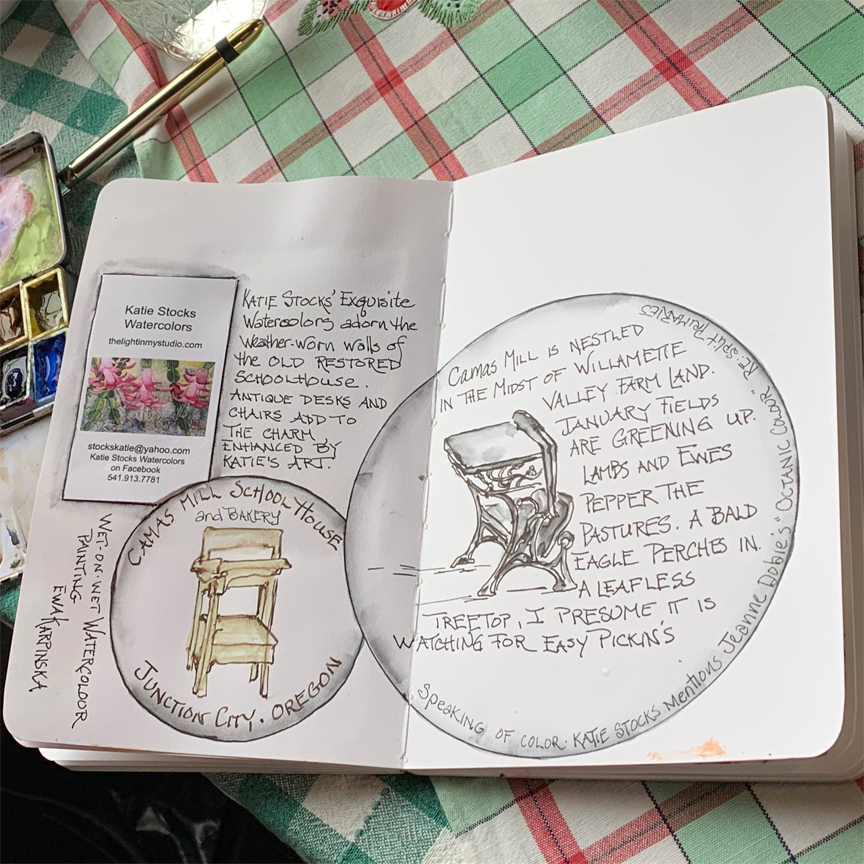 Katie Stocks
Watercolors
thelightinmystudio.com
stockskatie@yahoo.com
Katie Stocks Watercolors
on Facebook
541.913.7781
KATIE STOCKS' EXQUISITE
WATERCOLORS ADORN THE
WEATHER-WORN WALLS OF
THE OLD RESTORED
SCHOOLHOUSE.
ANTIQUE DESKS AND
CHAIRS ADD TO
THE CHARM
ENHANCED BY
KATIE'S ART.
CAMAS MILL SCHOOL HOUSE
and BAKERY
JUNCTION CITY, OREGON
WET-ON-WET WATERCOLOUR
PAINTING
EWA KARPINSKA
CAMAS MILL IS NESTLED
IN THE MIDST OF WILLAMETTE
VALLEY FARM LAND.
JANUARY FIELDS
ARE GREENING UP.
LAMBS AND EWES
PEPPER THE
PASTURES. A BALD
EAGLE PERCHES IN
A LEAFLESS
TREETOP, I PRESUME IT IS
WATCHING FOR EASY PICKIN'S
Speaking OF COLOR. KATIE STOCKS Mentions Jeanne Dobie's "OCTANIC Colour" RE: SPLIT PRIMARIES